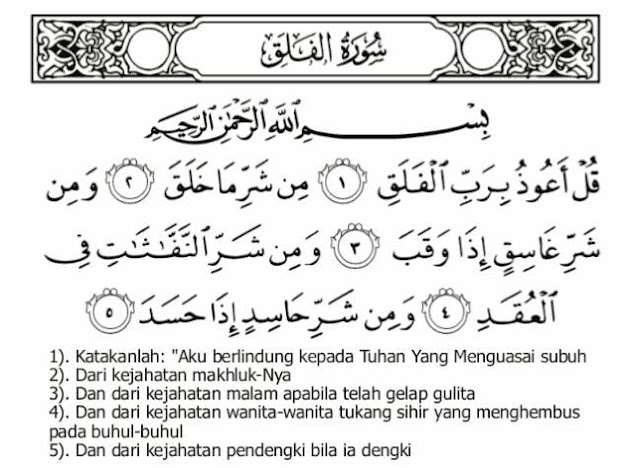 سُورَةُ الفَلَقِ
بِسْمِ اللَّهِ الرَّحْمَٰنِ الرَّحِيمِ
قُلْ أَعُوذُ بِرَبِّ الْفَلَقِ ١ مِن شَرِّ مَا خَلَقَ ٢ وَمِن
شَرِّ غَاسِقٍ إِذَا وَقَبَ ٣ وَمِن شَرِّ النَّفَّٰثَٰتِ فِى
الْعُقَدِ ٤ وَمِن شَرِّ حَاسِدٍ إِذَا حَسَدَ ٥
1). Katakanlah: "Aku berlindung kepada Tuhan Yang Menguasai subuh
2). Dari kejahatan makhluk-Nya
3). Dan dari kejahatan malam apabila telah gelap gulita
4). Dan dari kejahatan wanita-wanita tukang sihir yang menghembus
pada buhul-buhul
5). Dan dari kejahatan pendengki bila ia dengki